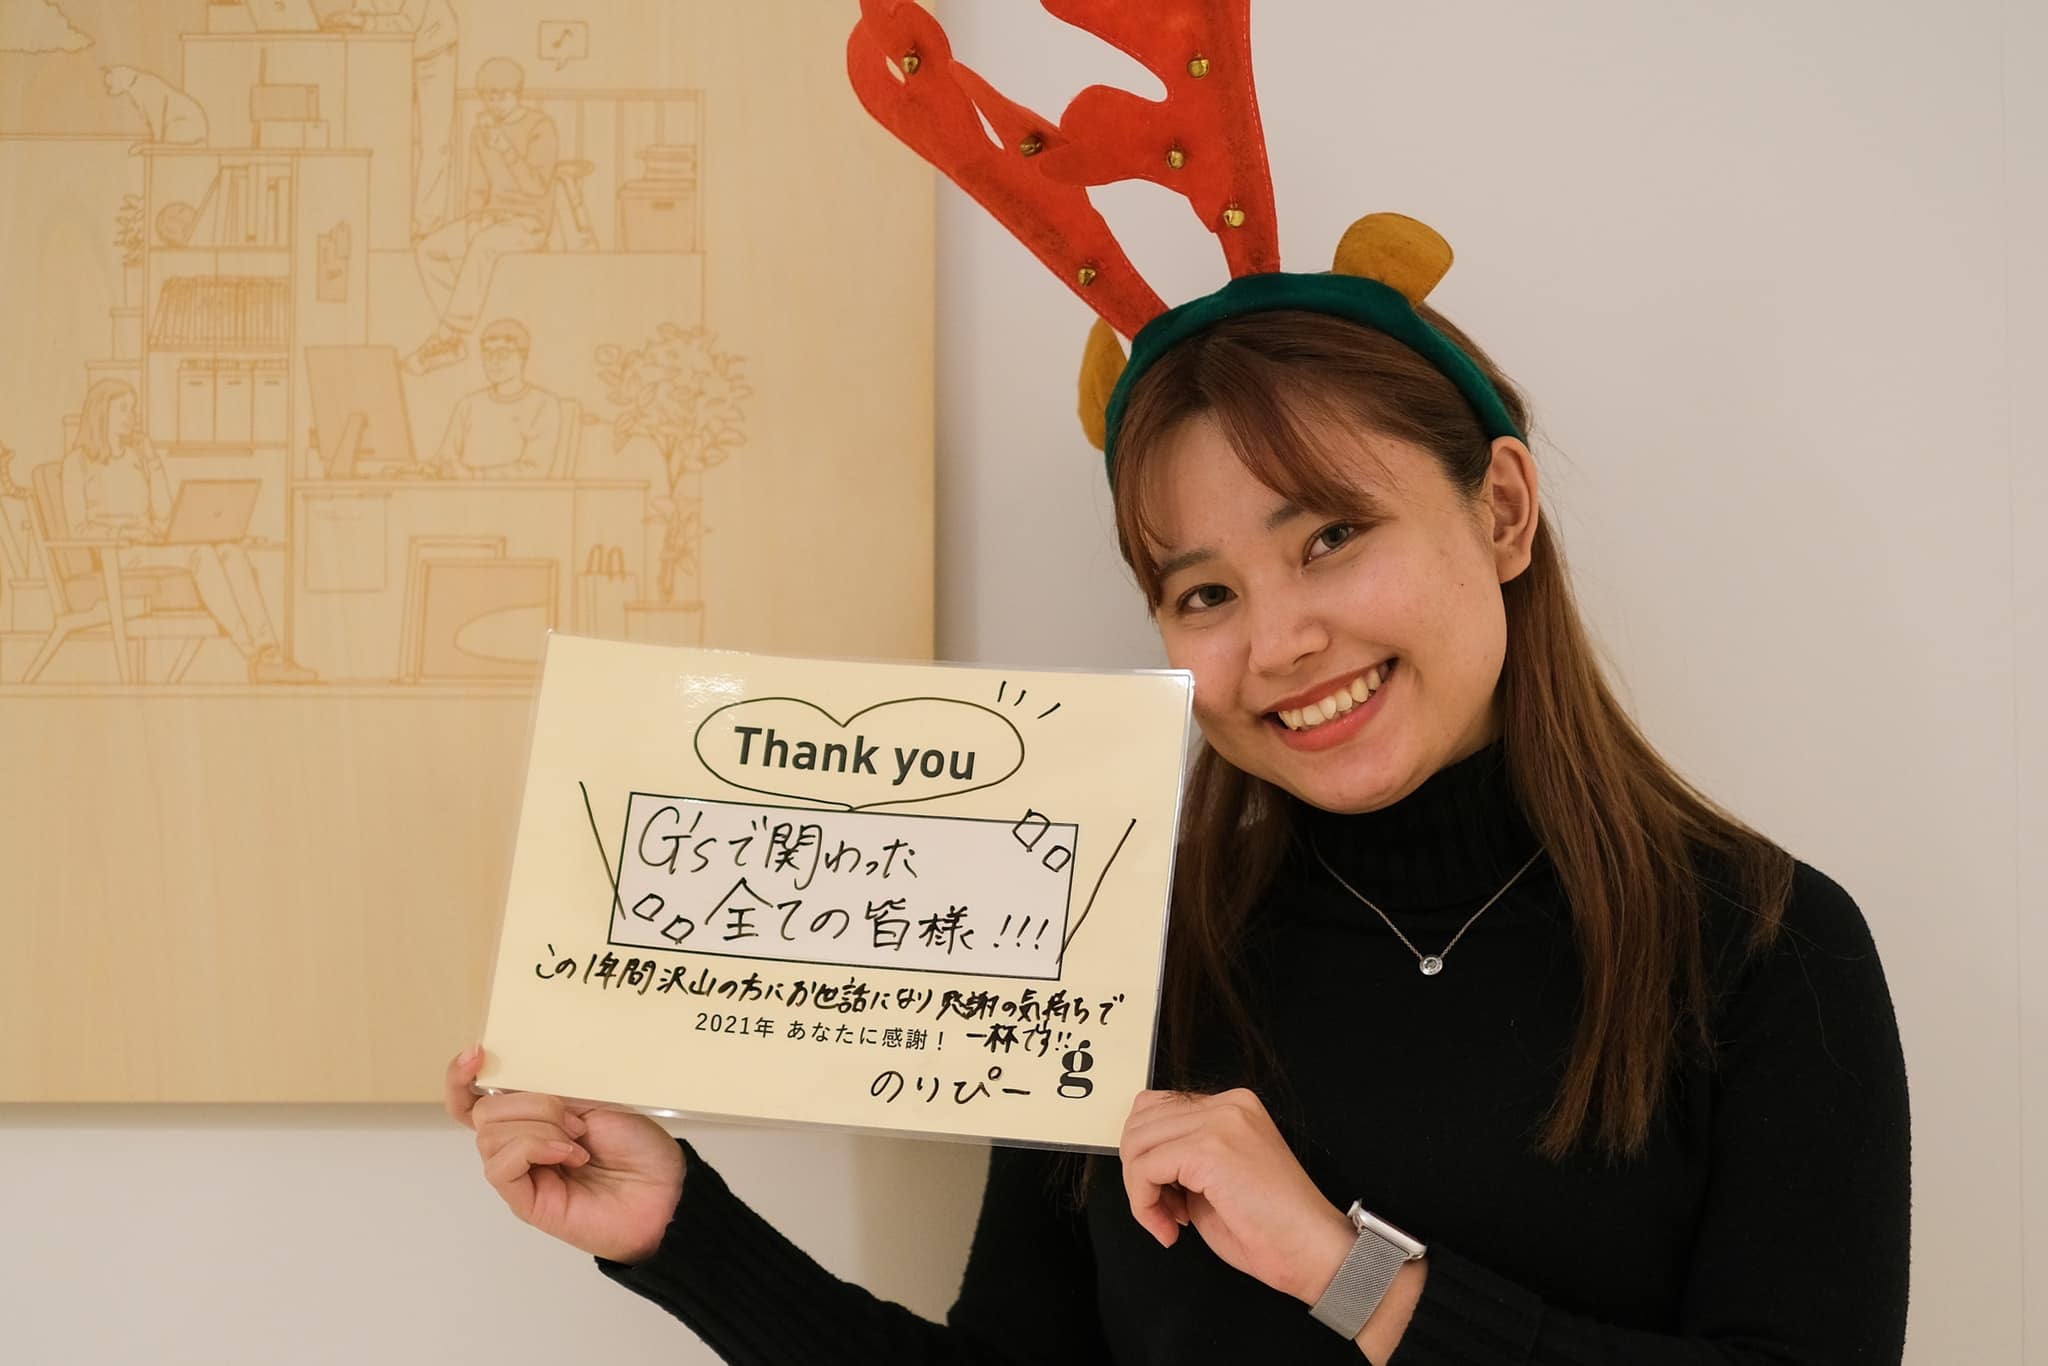 Thank you
G'sで関わった
全ての皆様!!!
この1年間沢山の方にお世話になり感謝の気持ちで
一杯です!!
2021年 あなたに感謝!
のりぴー
g